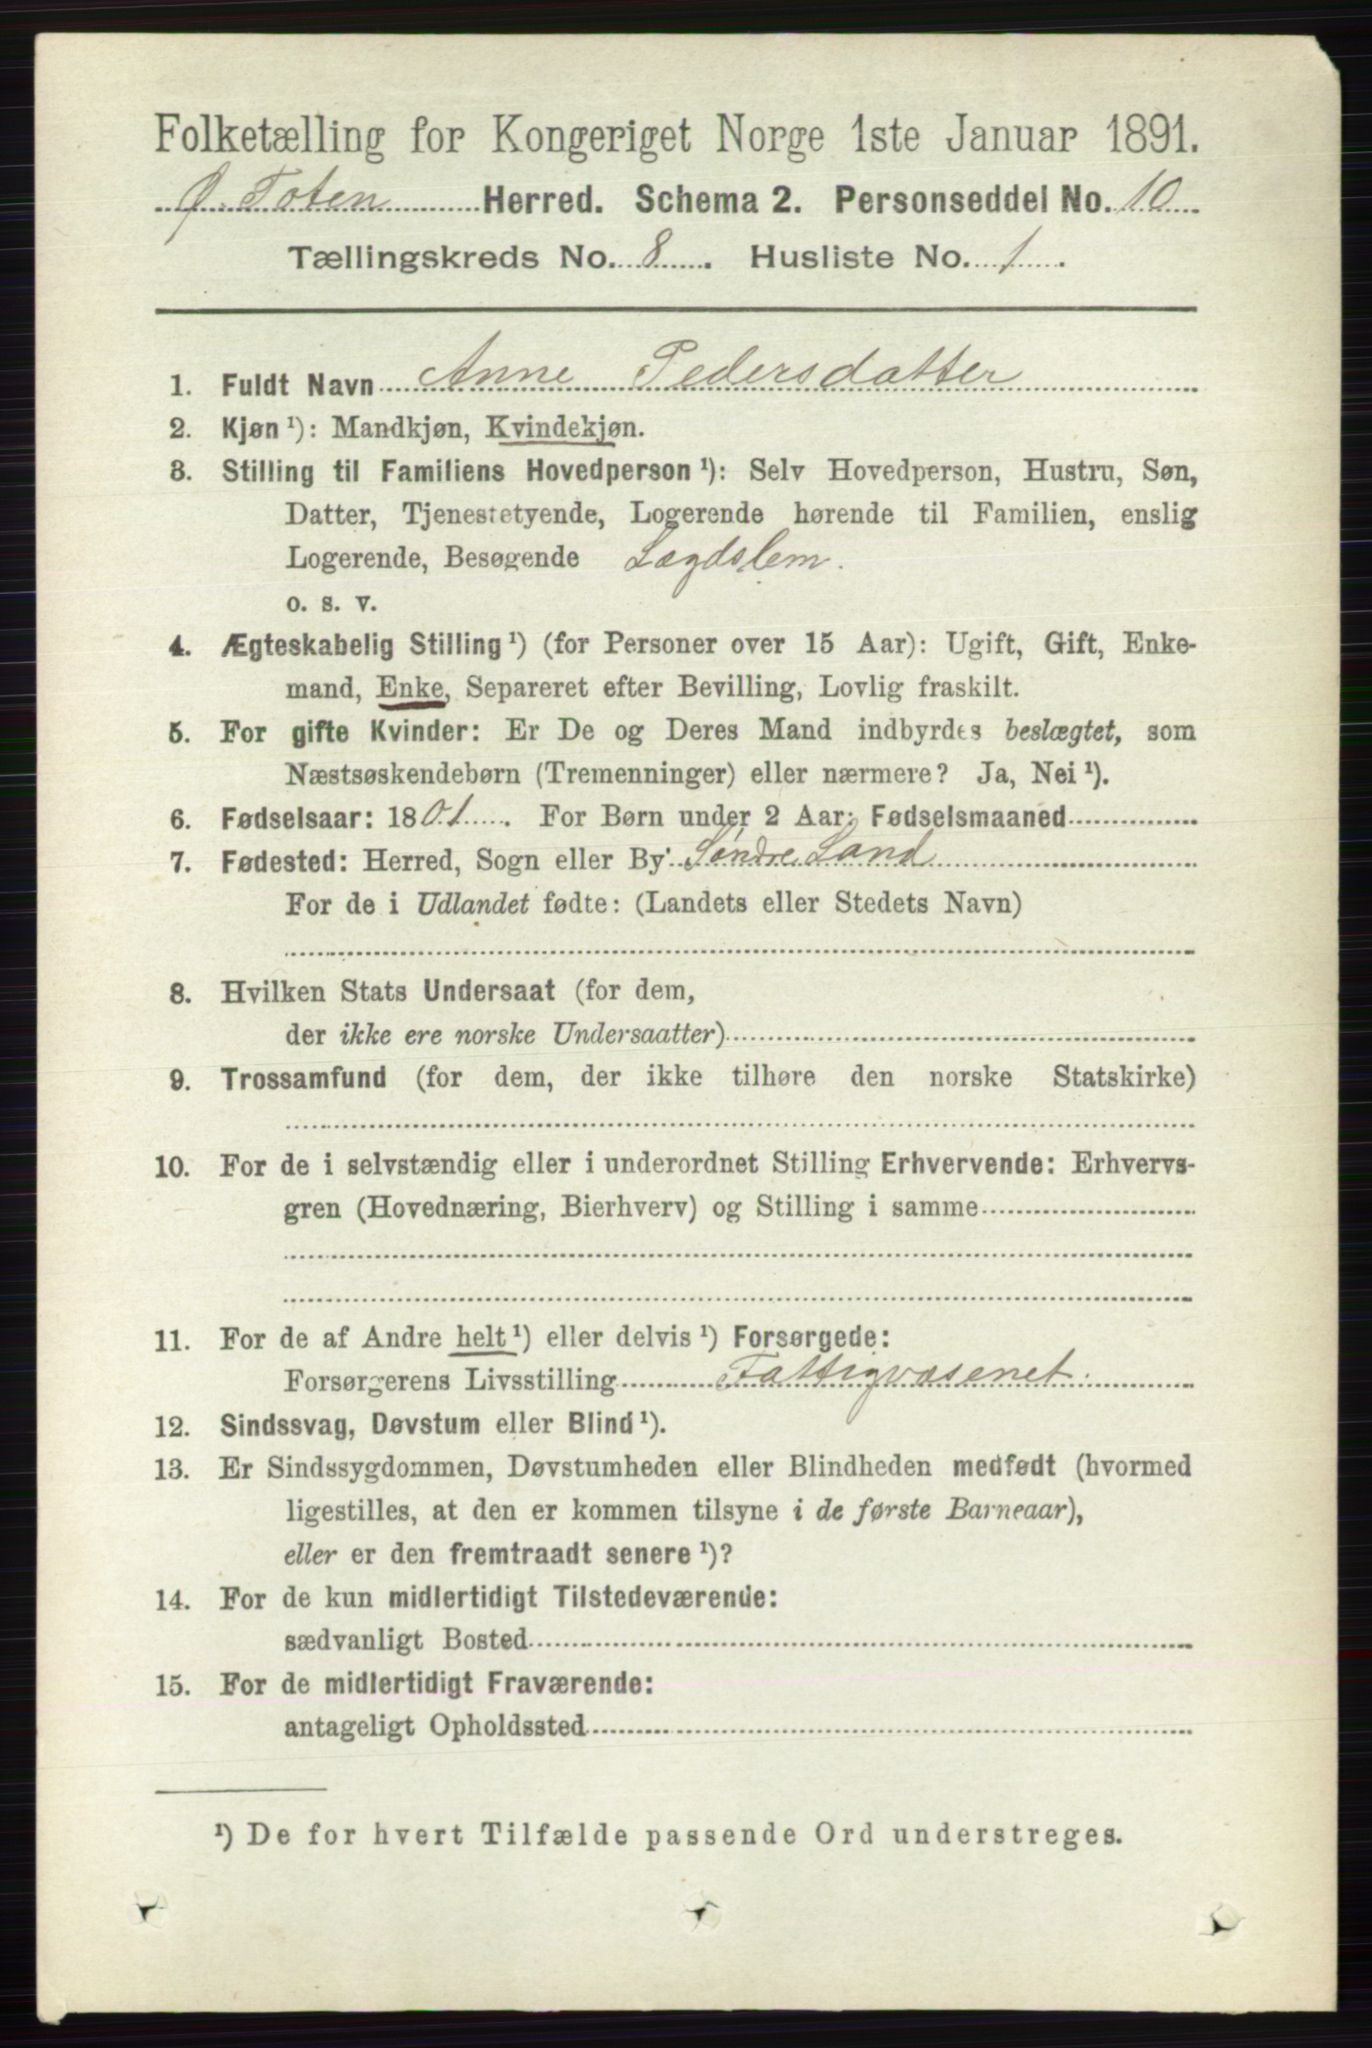 Folketælling for Kongeriget Norge 1ste Januar 1891.
Ø. Toten Herred. Schema 2. Personseddel No. 10
Tællingskreds No. 8. Husliste No. 1.
1. Fuldt Navn Anne Pedersdatter
2. Kjøn¹): Mandkjøn, Kvindekjøn.
3. Stilling til Familiens Hovedperson¹): Selv Hovedperson, Hustru, Søn,
Datter, Tjenestetyende, Logerende hørende til Familien, enslig
Logerende, Besøgende Lægdslem.
o. s. v.
4. Ægteskabelig Stilling¹) (for Personer over 15 Aar): Ugift, Gift, Enke-
mand, Enke, Separeret efter Bevilling, Lovlig fraskilt.
5. For gifte Kvinder: Er De og Deres Mand indbyrdes beslægtet, som
Næstsøskendebørn (Tremenninger) eller nærmere? Ja, Nei¹).
6. Fødselsaar: 1801. For Børn under 2 Aar: Fødselsmaaned
7. Fødested: Herred, Sogn eller By Søndre Land
For de i Udlandet fødte: (Landets eller Stedets Navn)
8. Hvilken Stats Undersaat (for dem,
der ikke ere norske Undersaatter)
9. Trossamfund (for dem, der ikke tilhøre den norske Statskirke)
10. For de i selvstændig eller i underordnet Stilling Erhvervende: Erhvervs-
gren (Hovednæring, Bierhverv) og Stilling i samme
11. For de af Andre helt¹) eller delvis¹) Forsørgede:
Forsørgerens Livsstilling Fattigvæsenet.
12. Sindssvag, Døvstum eller Blind¹).
13. Er Sindssygdommen, Døvstumheden eller Blindheden medfødt (hvormed
ligestilles, at den er kommen tilsyne i de første Barneaar),
eller er den fremtraadt senere¹)?
14. For de kun midlertidigt Tilstedeværende:
sædvanligt Bosted
15. For de midlertidigt Fraværende:
antageligt Opholdssted
¹) De for hvert Tilfælde passende Ord understreges.